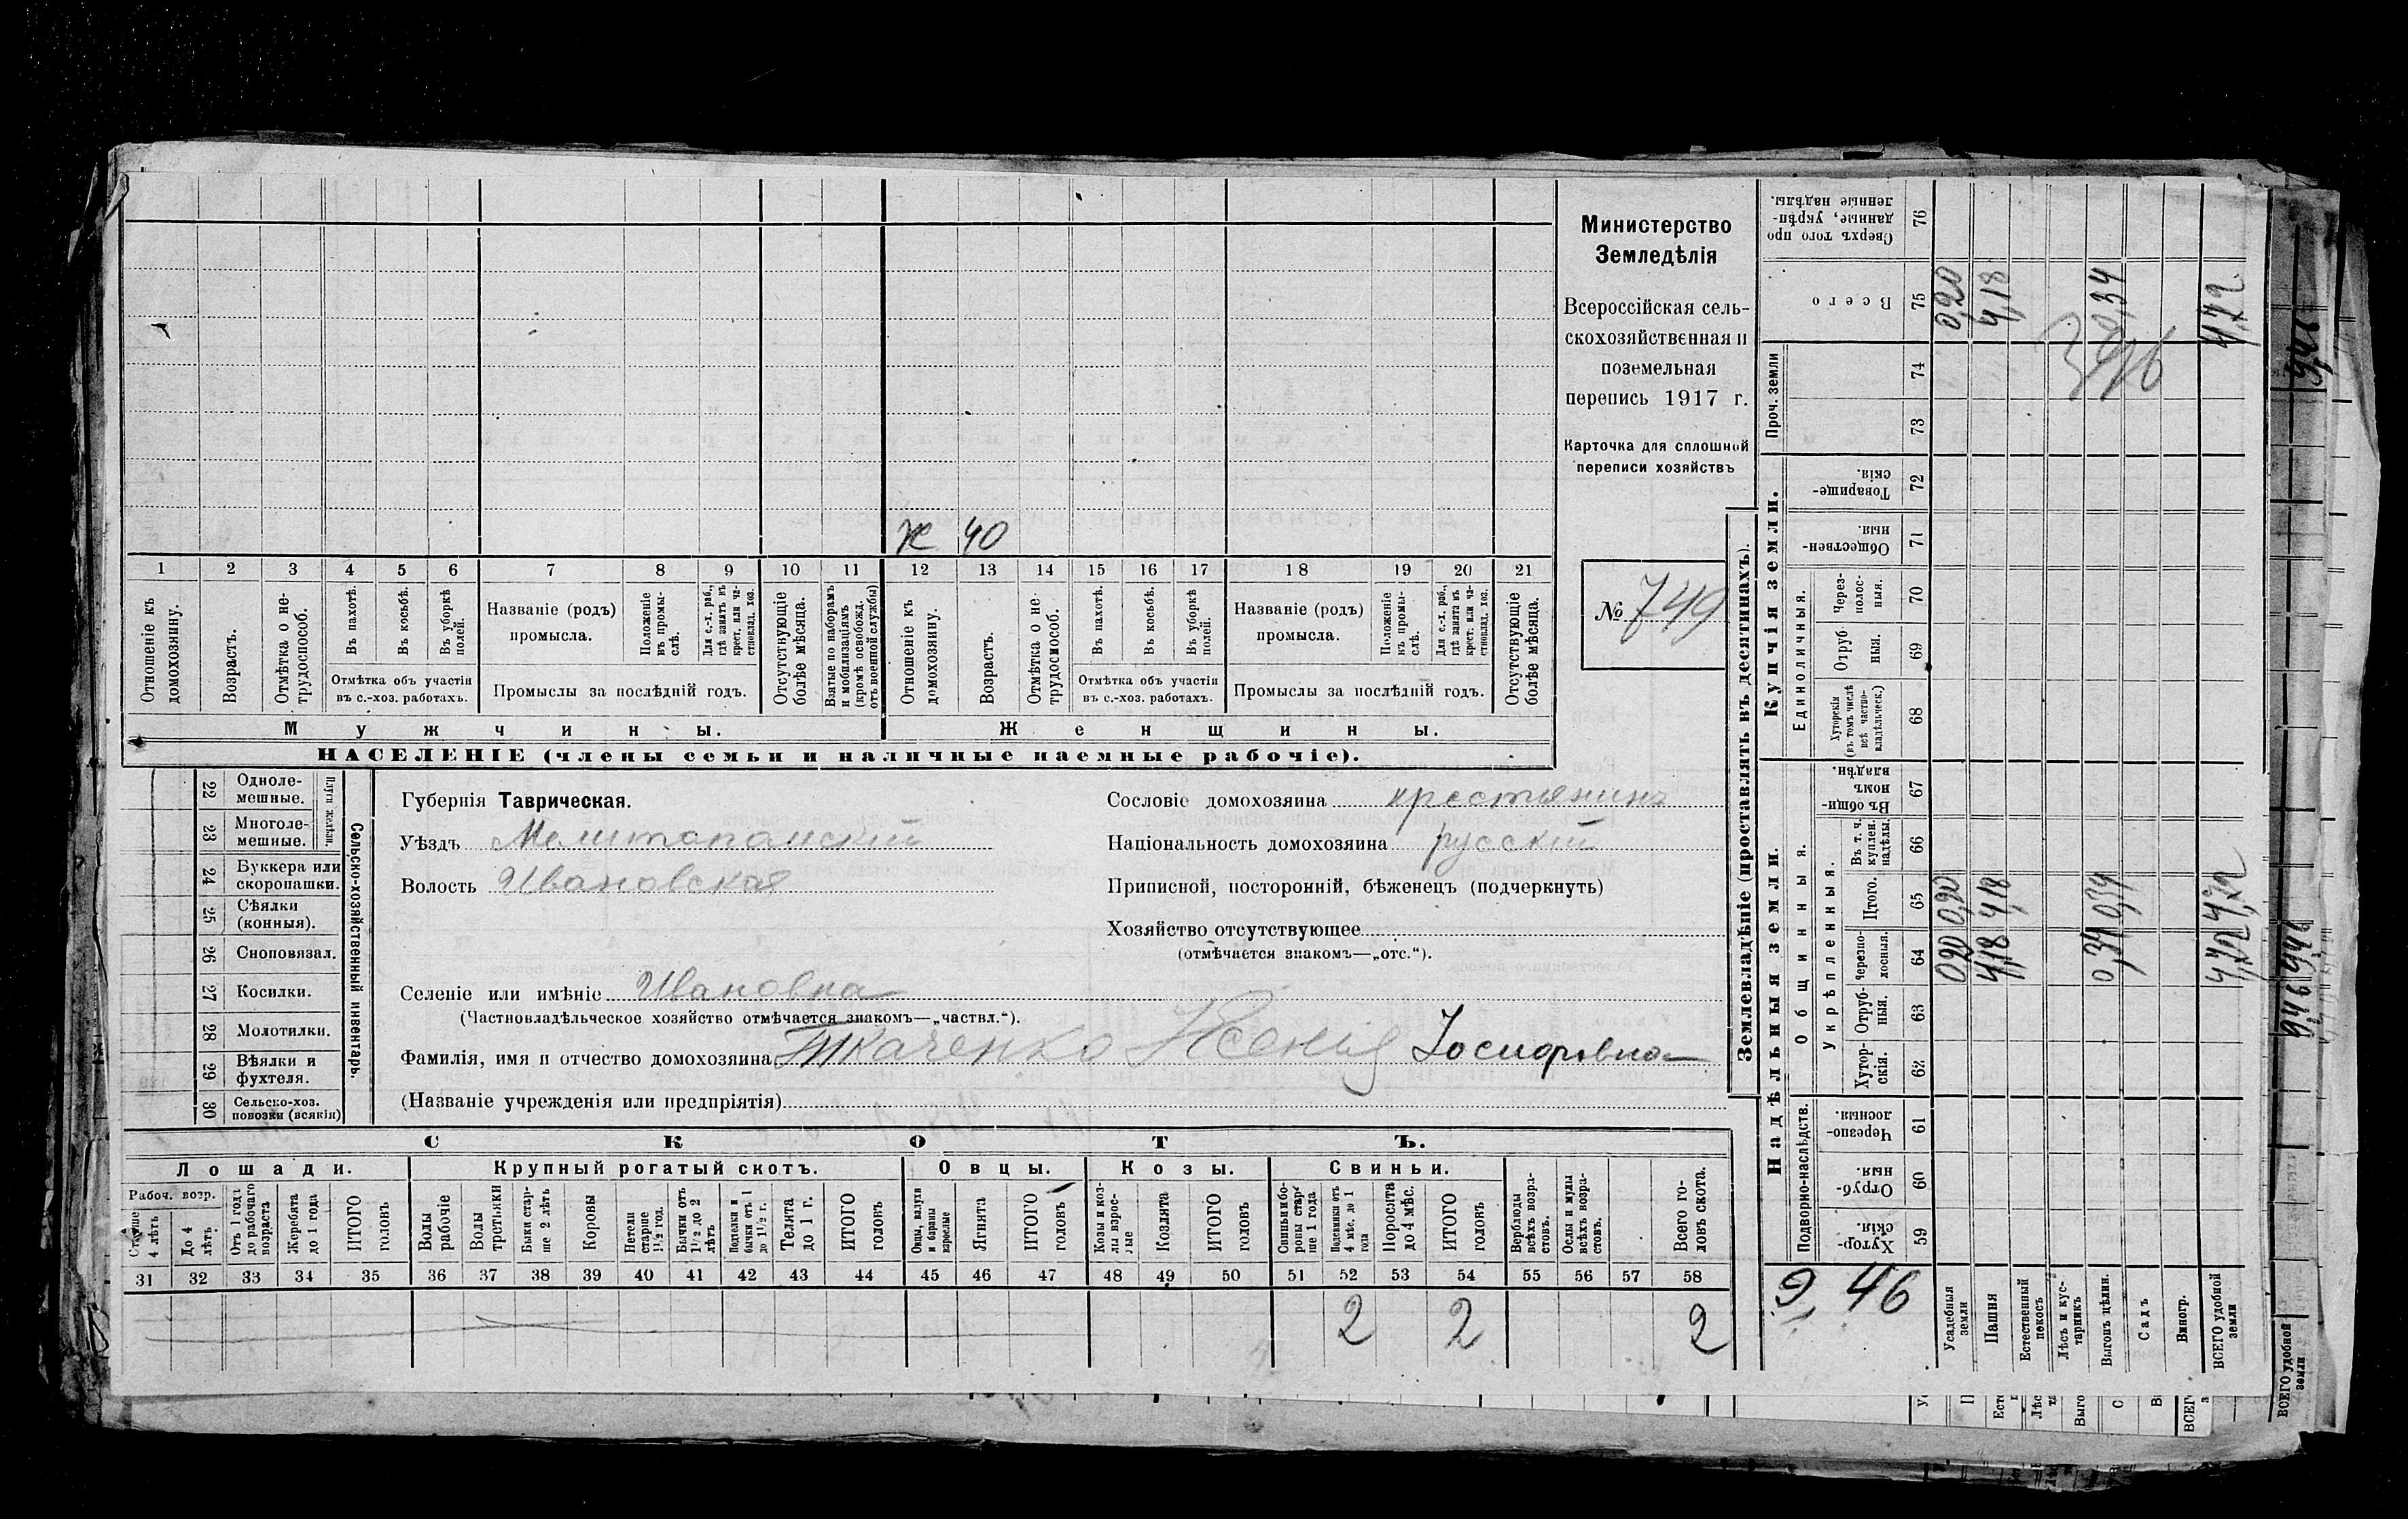 Министерство
Земледѣлія
Всероссійская сель-
скохозяйственная и
поземельная
перепись 1917 г.
Карточка для сплошной
переписи хозяйствъ
№ 749
ж 40
1 2 3 4 5 6 7 8 9 10 11 12 13 14 15 16 17 18 19 20 21
Отношеніе къ домохозяину.
Возрастъ.
Отмѣтка о не-трудоспособ.
Въ пахотѣ.
Въ косьбѣ.
Въ уборкѣ полей.
Отмѣтка объ участіи
въ с.-хоз. работахъ.
Названіе (родъ)
промысла.
Положеніе въ промы-слѣ.
Для с.-х. раб., гдѣ занятъ въ крест. или ча-стновлад. хоз.
Промыслы за послѣдній годъ.
Отсутствующіе болѣе мѣсяца.
Взятые по наборамъ и мобилизаціямъ (кромѣ освобожд. отъ военной службы)
Отношеніе къ домохозяину.
Возрастъ.
Отмѣтка о не трудосмособ.
Въ пахотѣ.
Въ косьбѣ.
Въ уборкѣ полей.
Отмѣтка объ участіи
въ с.-хоз. работахъ.
Названіе (родъ)
промысла.
Положеніе въ промы-слѣ.
Для с.-х. раб., гдѣ занята въ крест. или ча-стновлад. хоз.
Промыслы за послѣдній годъ.
Отсутствующіе болѣе мѣсяца.
Мужчины.
Женщины.
НАСЕЛЕНІЕ (члены семьи и наличные наемные рабочіе).
Сельско-хозяйственный инвентарь.
Плуги желѣзн.
22 Одноле-мешные.
23 Многоле-мешные.
24 Буккера или скоропашки.
25 Сѣялки (конныя).
26 Сноповязал.
27 Косилки.
28 Молотилки.
29 Вѣялки и фухтеля.
30 Сельско-хоз. повозки (всякія)
Губернія Таврическая.
Уѣздъ Мелитопольскій
Волость Ивановская
Сословіе домохозяина крестьянинъ
Національность домохозяина русскій
Приписной, посторонній, бѣженецъ (подчеркнуть)
Хозяйство отсутствующее
(отмѣчается знакомъ—„отс.“).
Селеніе или имѣніе Ивановка
(Частновладѣльческое хозяйство отмѣчается знакомъ—„частвл.“).
Фамилія, имя и отчество домохозяина Ткаченко Ксенія
(Названіе учрежденія или предпріятія)
СКОТЪ.
Лошади.
Крупный рогатый скотъ.
Овцы.
Козы.
Свиньи.
Рабоч. возр.
Старше 4 лѣтъ
До 4 лѣтъ
Отъ 1 года до рабочаго возраста
Жеребята до 1 года
ИТОГО головъ
Волы рабочіе
Волы третьяки
Быки стар-ше 2 лѣтъ
Коровы
Нетели старше 1½ год.
Бычки отъ 1½ до 2 лѣтъ
Подтелки и бычки отъ 1 до 1½ г.
Телята до 1 г.
ИТОГО головъ
Овцы, валухи и бараны взрослые
Ягнята
ИТОГО головъ
Козы и коз-лы взрос-лые
Козлята
ИТОГО головъ
Свиньи и бо-ровы старѣ ше 1 года
Подсвинки отъ 4 мѣс. до 1 года
Поросята до 4 мѣс.
ИТОГО головъ
Верблюды всѣхъ возра-стовъ.
Ослы и мулы всѣхъ возра-стовъ.
Всего го-ловъ скота.
31 32 33 34 35 36 37 38 39 40 41 42 43 44 45 46 47 48 49 50 51 52 53 54 55 56 57 58
2 2 2
Землевладѣніе (проставлять въ десятинахъ).
Надѣльныя земли.
Купчія земли.
Проч. земли
Подворно-наслѣдств.
Общинныя.
Укрѣпленныя.
Единоличныя.
Хутор-скія. 59
Отруб-ныя. 60
Черезпо-лосныя. 61
Хутор-скія. 62
Отруб-ныя. 63
Черезпо-лосныя. 64
Итого. 65
Въ т. ч. куплен. надѣлы. 66
Въ общи-номъ владѣн. 67
Хуторскія (въ томъ числѣ всѣ частно-владѣльческ.) 68
Отруб ныя. 69
Через-полос-ныя. 70
Обществен-ныя 71
Товарище-скія. 72
73
74
Всего 75
Сверхъ того про данные, укрѣп-ленные надѣлы. 76
9,46
Усадебныя земли 0,20 0,20 0,20
Пашня 4,18 4,18 4,18
Естественный покосъ
Лѣсъ и кус-тарникъ
Выгонъ цѣлин. 0,34 0,34 0,34
Садъ
Виногр.
ВСЕГО удобной земли 4,72 4,72 4,72
ВСЕГО удобной земли 9,46 9,46 9,46